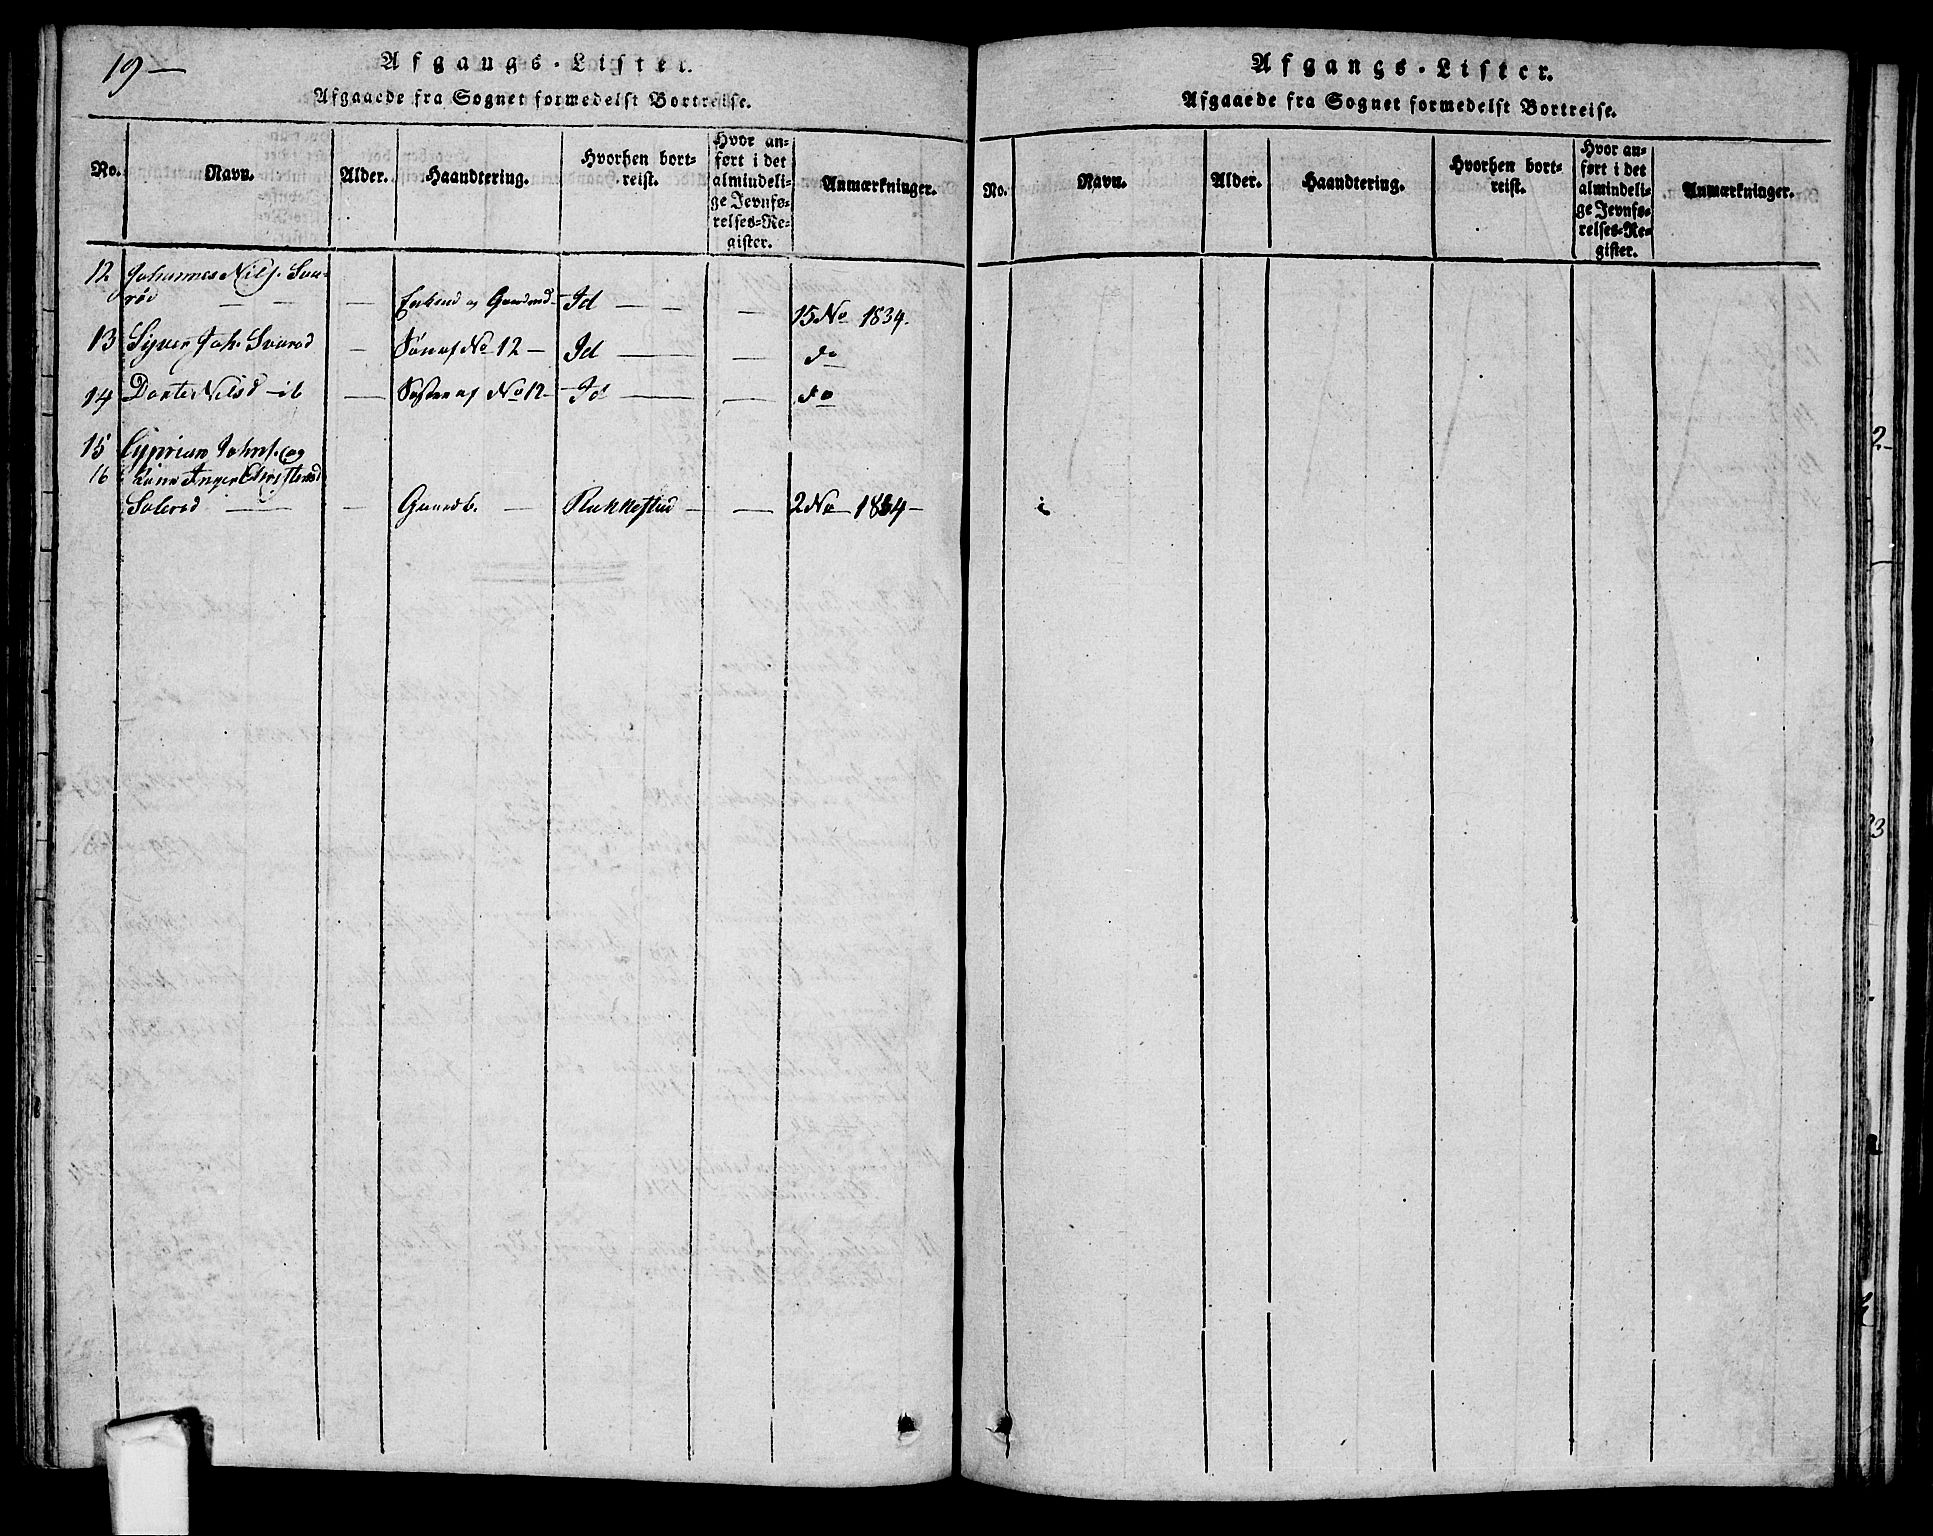 19—
Afgangs-Lister.
Afgaaede fra Sognet formedelst Bortreise.
No. Navn. Alder. Haandtering. Hvorhen bort-
reist. Hvor an-
ført i det
almindeli-
ge Jevnfø-
relses-Re-
gister. Anmærkninger.
12 Johannes Nils. Sva-
rød — — — Enkemd og Gaardmd — Id — — — 15 No 1834.
13 Syver Joh. Svarød — Søn af No 12 — Id — — do
14 Dorte Nilsd — ib — Søster af No 12 — Id — — do
15 Cyprian Johns. og
16 Kone Inger Christensd
— — Gaardb. — Rakkestad — — 2 No 1834 —
Afgangs-Lister.
Afgaaede fra Sognet formedelst Bortreise.
No. Navn. Alder. Haandtering. Hvorhen bort-
reist. Hvor an-
ført i det
almindeli-
ge Jevnfø-
relses-Re-
gister. Anmærkninger.